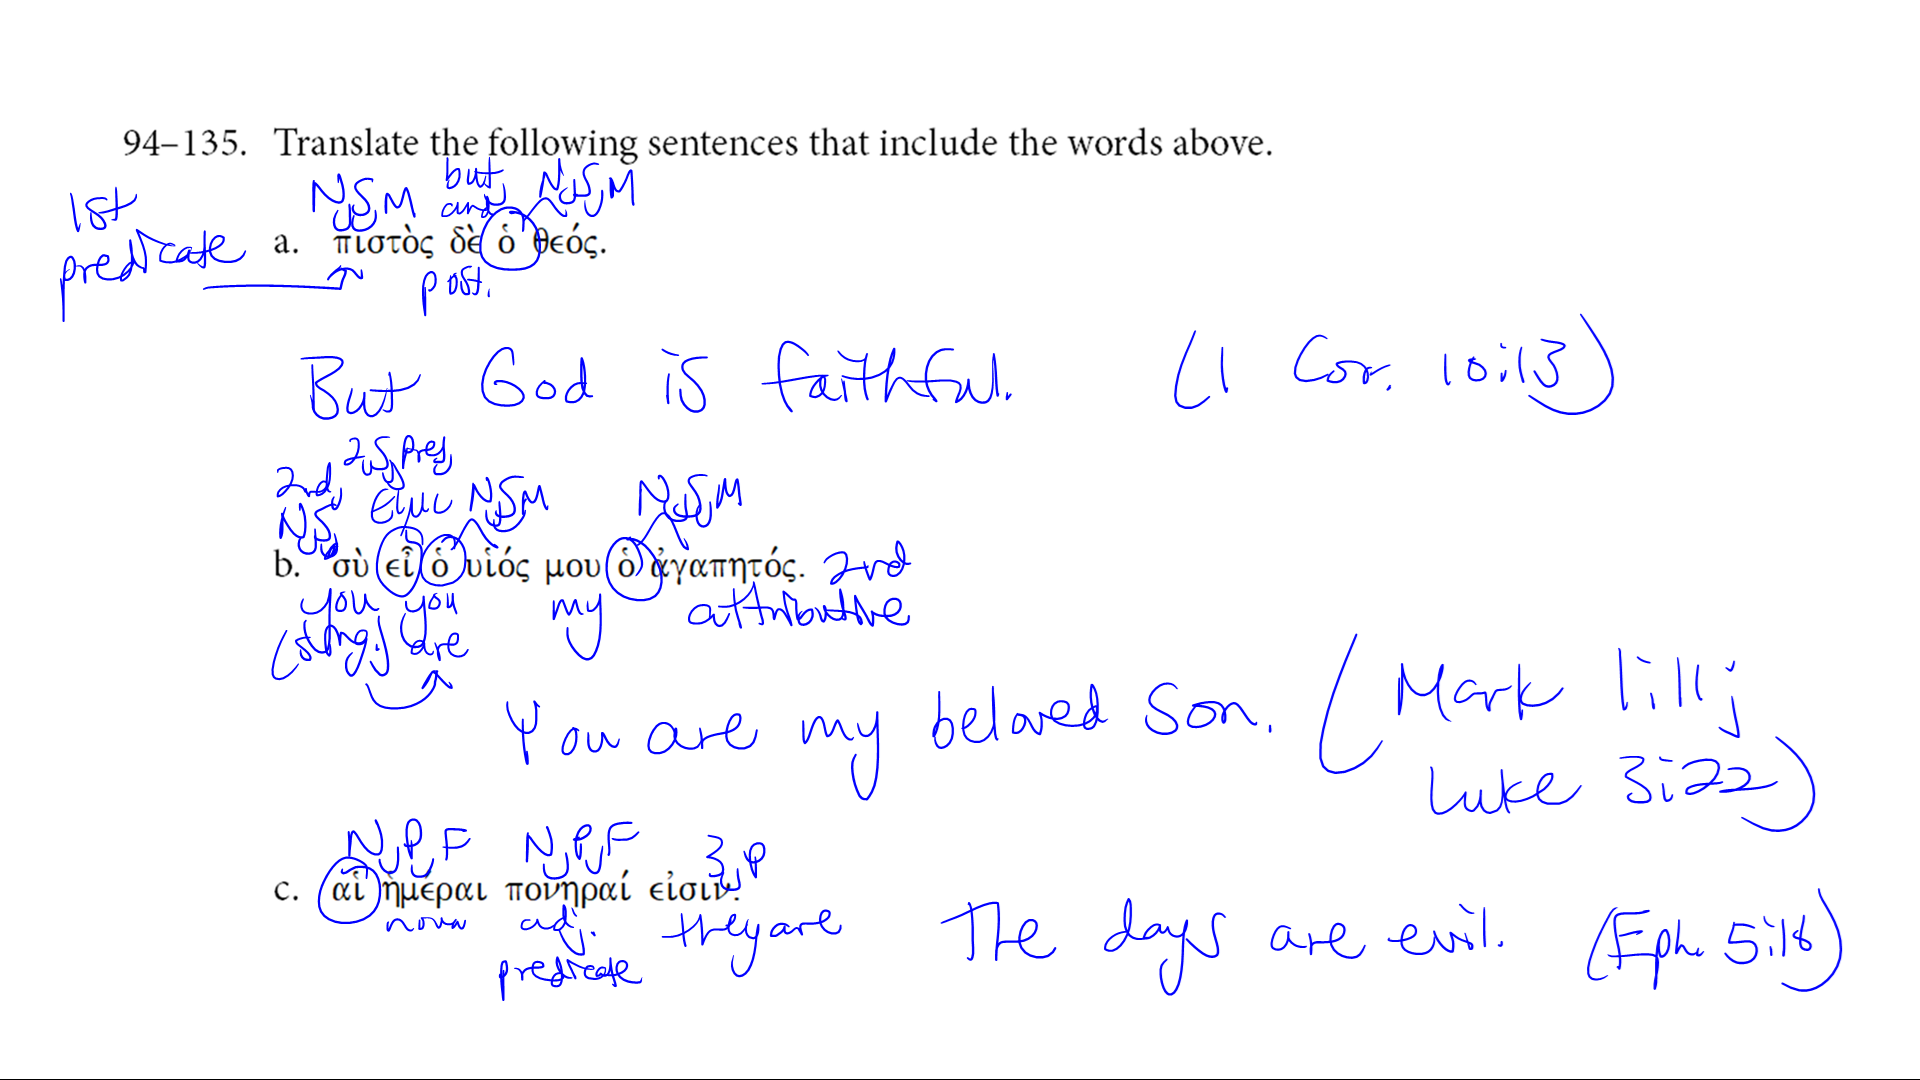 94–135. Translate the following sentences that include the words above.
1st
predicate
N,S,M but, and N,S,M
a. πιστὸς δὲ ὁ θεός.
post.
But God is faithful. (1 Cor. 10:13)
2nd, N,S, 2,S,Pres, εἰμι N,S,M N,S,M
b. σὺ εἶ ὁ υἱός μου ὁ ἀγαπητός. 2nd
you you my attributive
(sing.) are
You are my beloved Son. (Mark 1:11;
Luke 3:22)
N,P,F N,P,F 3,P
c. αἱ ἡμέραι πονηραί εἰσιν.
noun adj. they are
predicate
The days are evil. (Eph. 5:16)